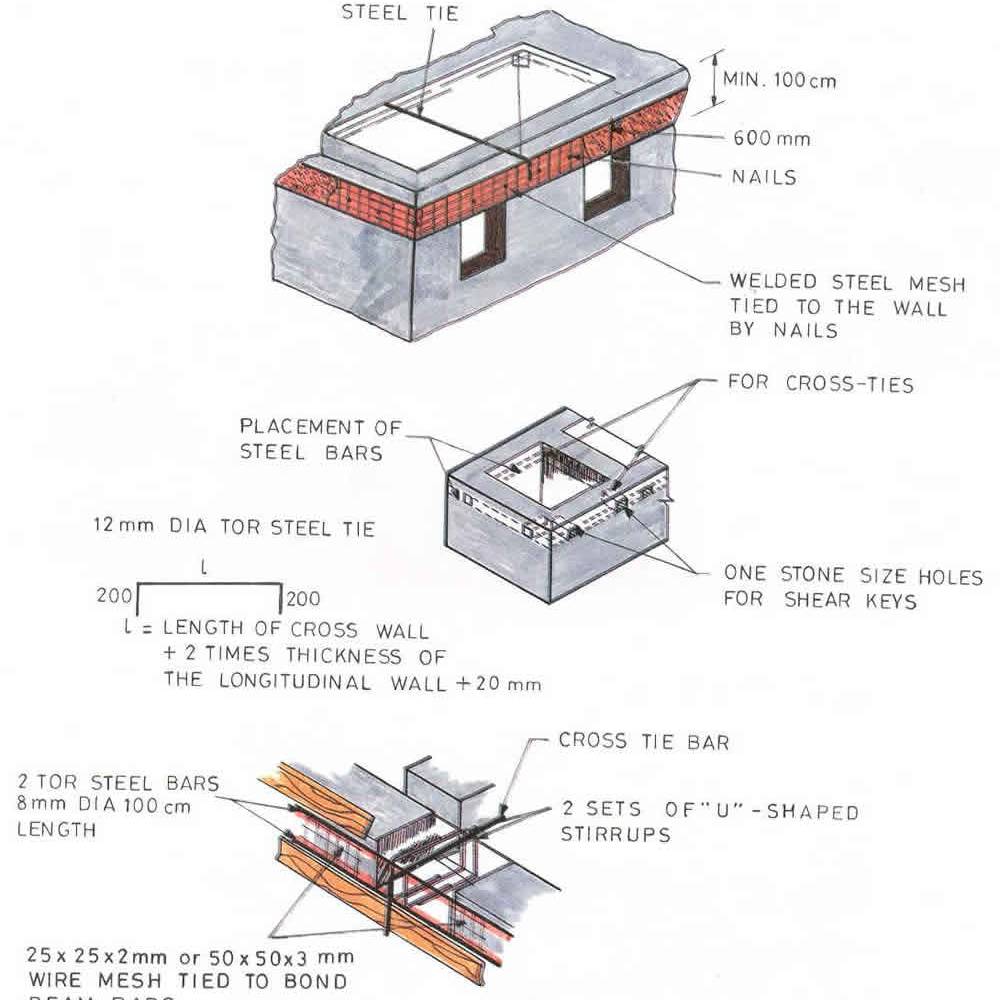 STEEL TIE
MIN. 100cm
600 mm
NAILS
WELDED STEEL MESH
TIED TO THE WALL
BY NAILS
FOR CROSS-TIES
PLACEMENT OF
STEEL BARS
12mm DIA TOR STEEL TIE
l
200
200
ONE STONE SIZE HOLES
FOR SHEAR KEYS
l = LENGTH OF CROSS WALL
+ 2 TIMES THICKNESS OF
THE LONGITUDINAL WALL +20 mm
CROSS TIE BAR
2 TOR STEEL BARS
8mm DIA 100 cm
LENGTH
2 SETS OF "U"-SHAPED
STIRRUPS
25 x 25 x 2mm or 50 x 50 x 3 mm
WIRE MESH TIED TO BOND